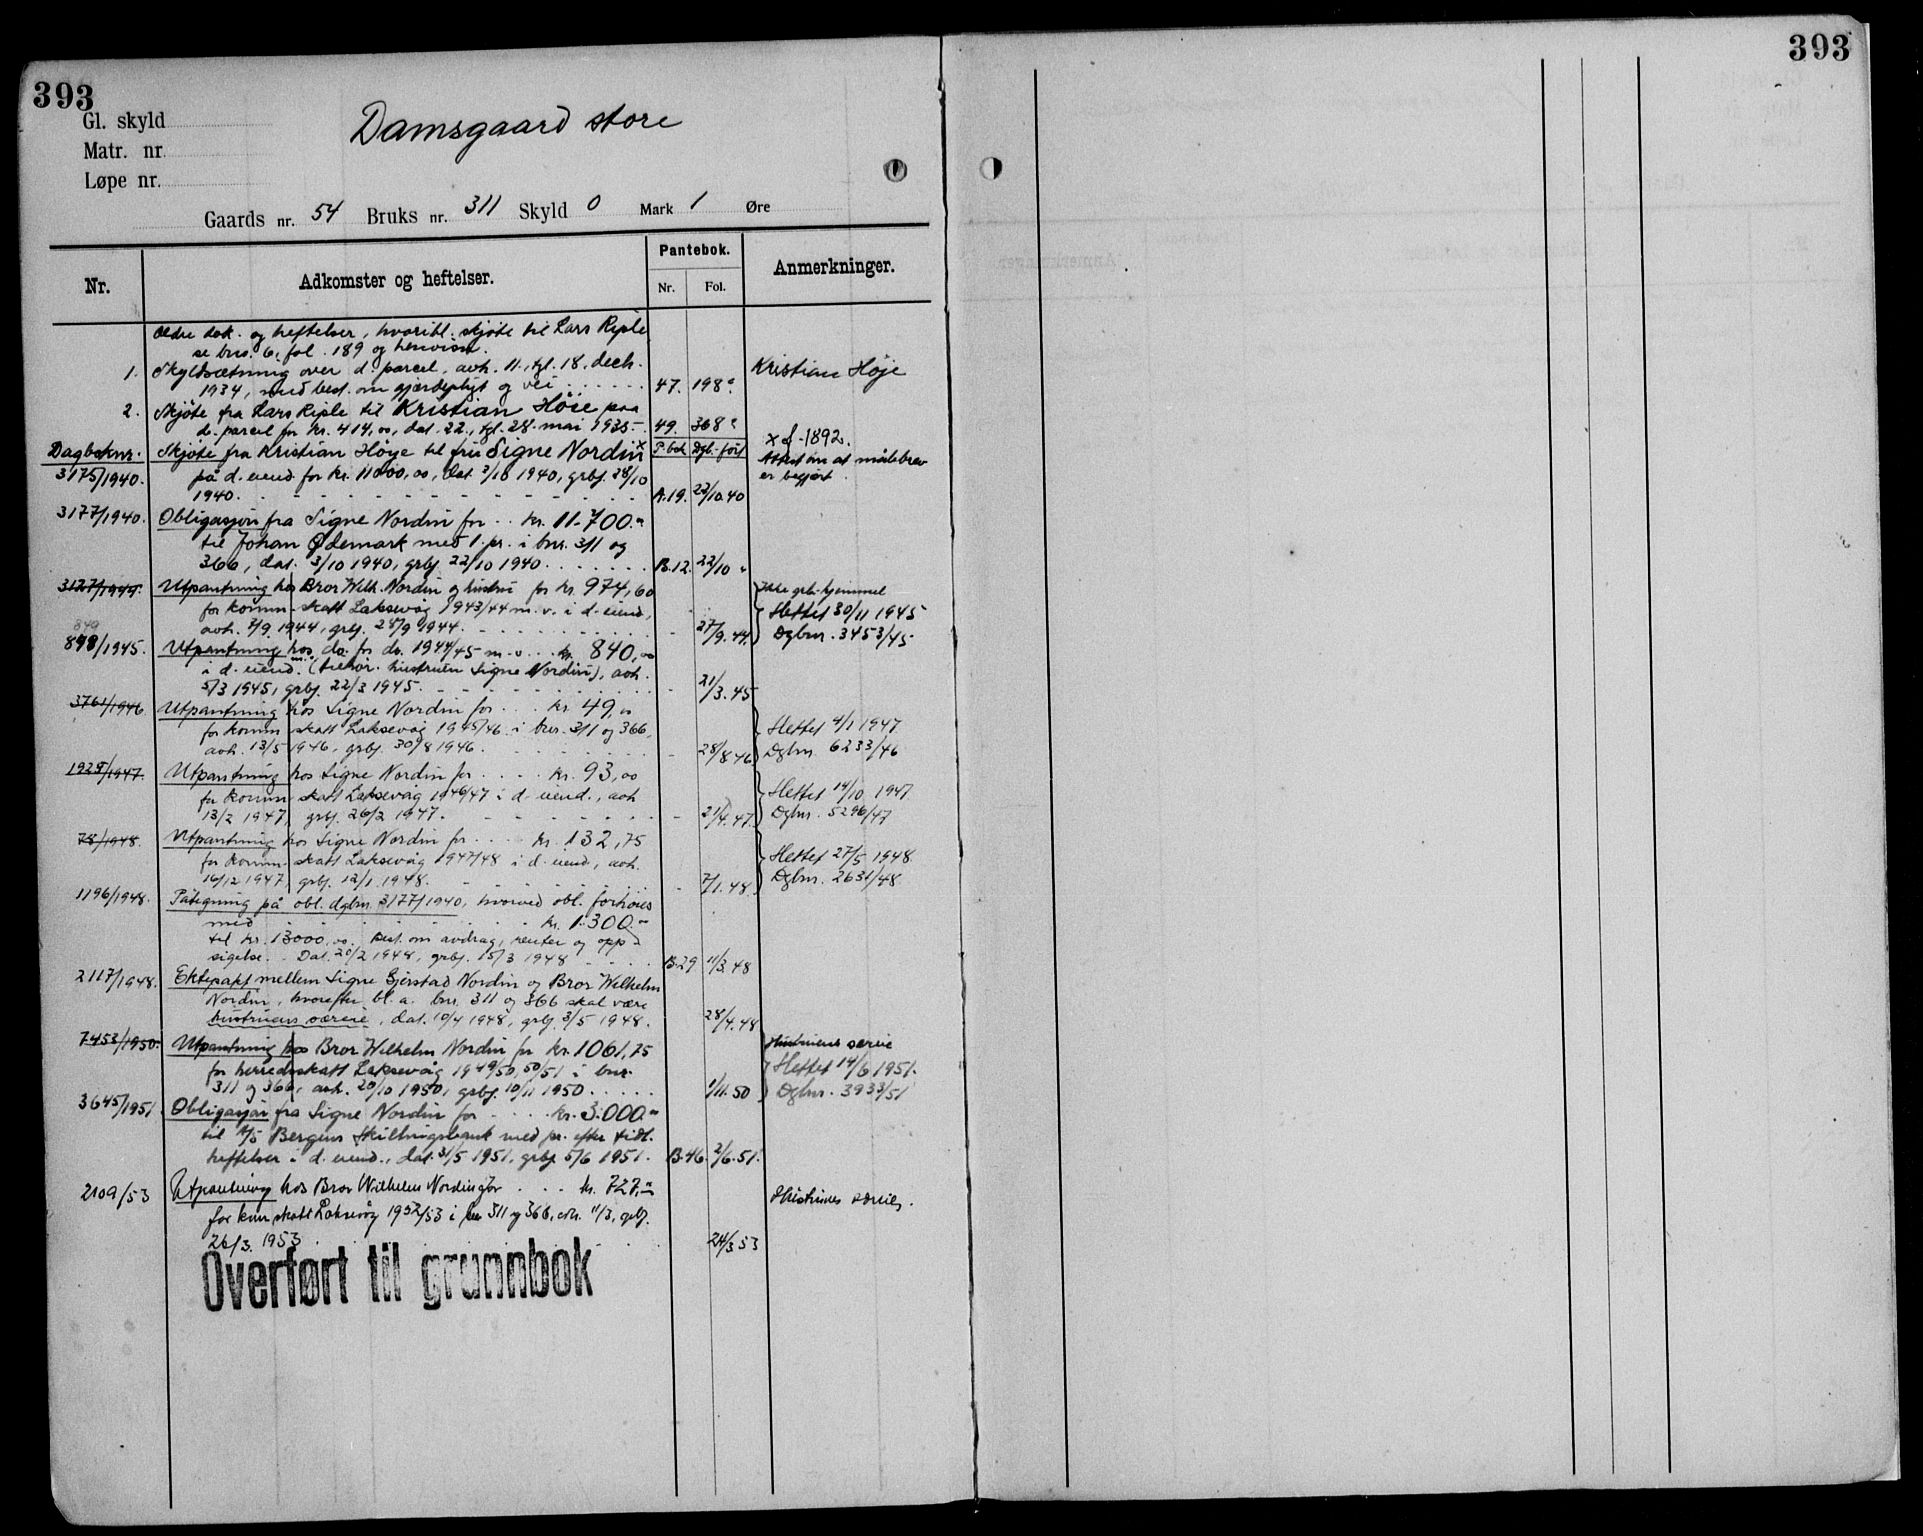 393
393
Gl. skyld
Matr. nr.
Løpe nr.
Damsgaard store
Gaards nr. 54 Bruks nr. 311 Skyld 0 Mark 1 Øre
Nr.
Adkomster og heftelser.
Pantebok.
Nr. Fol.
Anmerkninger.
Ældre dok. og heftelser, hvoribl. skjøte til Lars Riple
se bnr. 6, fol. 189 og henvisn.
1. Skyldsætning over d. parcel, avh. 11., tgl. 18. decb.
1934, med best. om gjærdepligt og vei 47. 198
Kristian Höje
2. Skjöte fra Lars Riple til Kristian Höie paa
d. parcel for kr. 414,00, dat. 22., tgl. 28. mai 1935 49. 368
Dagboknr. P.bok Dgb.-ført
3175/1940. Skjöte fra Kristian Höye til fru Signe Nordin x
på d. eiend. for kr. 11000,00, dat. 3/10 1940, grbf. 28/10
1940. A.19. 22/10.40
x f. 1892.
Attest om at målebrev
er begjært.
3177/1940. Obligasjon fra Signe Nordin for kr. 11.700.-
til Johan Ødemark med 1. pr. i bnr. 311 og
366, dat. 3/10 1940, grbf. 22/10 1940 B.12. 22/10 "
3127/1944. Utpantning hos Bror Wilh. Nordin og hustru for kr. 974,60
for komm. skatt Laksevåg 1943/44 m.v. i d. eiend.,
avh. 7/9 1944, grbf. 28/9 1944. 27/9.44.
Ikke grb. hjemmel
Slettet 30/11 1945
Dgbnr. 3453/45
849
848/1945. Utpantning hos do. for do. 1944/45 m.v. kr. 840,00
i d. eiend. (tilhör. hustruen Signe Nordin), avh.
5/3 1945, grbf. 22/3 1945. 21/3.45
3761/1946. Utpantning hos Signe Nordin for kr. 49,00
for komm. skatt Laksevåg 1945/46 i bnr. 311 og 366,
avh. 13/5 1946, grbf. 30/8 1946. 28/8.46
Slettet 4/1 1947
Dgbnr. 6233/46
1925/1947. Utpantning hos Signe Nordin for kr. 93,00
for komm. skatt Laksevåg 1946/47 i d. eiend., avh.
13/2 1947, grbf. 26/2 1947. 21/4.47.
Slettet 14/10 1947
Dgbnr. 5296/47
78/1948. Utpantning hos Signe Nordin for kr. 132,75
for komm. skatt Laksevåg 1947/48 i d. eiend., avh.
16/12 1947, grbf. 12/1 1948. 7/1.48.
Slettet 27/5 1948
Dgbnr. 2631/48
1196/1948. Påtegning på obl. dgbnr. 3177/1940, hvorved obl. forhöies
med kr. 1.300.-
til kr. 13000,00. Best. om avdrag, renter og opp-
sigelse. Dat. 20/2 1948, grbf. 15/3 1948 B.29 11/3.48
2117/1948. Ektepakt mellem Signe Gjerstad Nordin og Bror Wilhelm
Nordin, hvorefter bl. a. bnr. 311 og 366 skal være
hustruens særeie, dat. 10/4 1948, grbf. 3/5 1948. 28/4.48
7453/1950. Utpantning hos Bror Wilhelm Nordin for kr. 1061,75
for herredsskatt Laksevåg 1949/50, 50/51 i bnr.
311 og 366, avh. 20/10 1950, grbf. 10/11 1950. 1/11.50
Hustruens særeie
Slettet 14/6 1951.
Dgbnr. 3933/51
3645/1951. Obligasjon fra Signe Nordin for kr. 3.000.-
til A/S Bergens Skillingsbank med pr. efter tidl.
heftelser i d. eiend., dat. 31/5 1951, grbf. 5/6 1951. B.46. 2/6.51.
2109/53 Utpantning hos Bror Wilhelm Nordin for kr. 727,-
for kom. skatt Laksevåg 1952/53 i bnr 311 og 366, avh. 11/3, grbf.
26/3. 1953 24/3 53
Hustruens særeie.
Overført til grunnbok